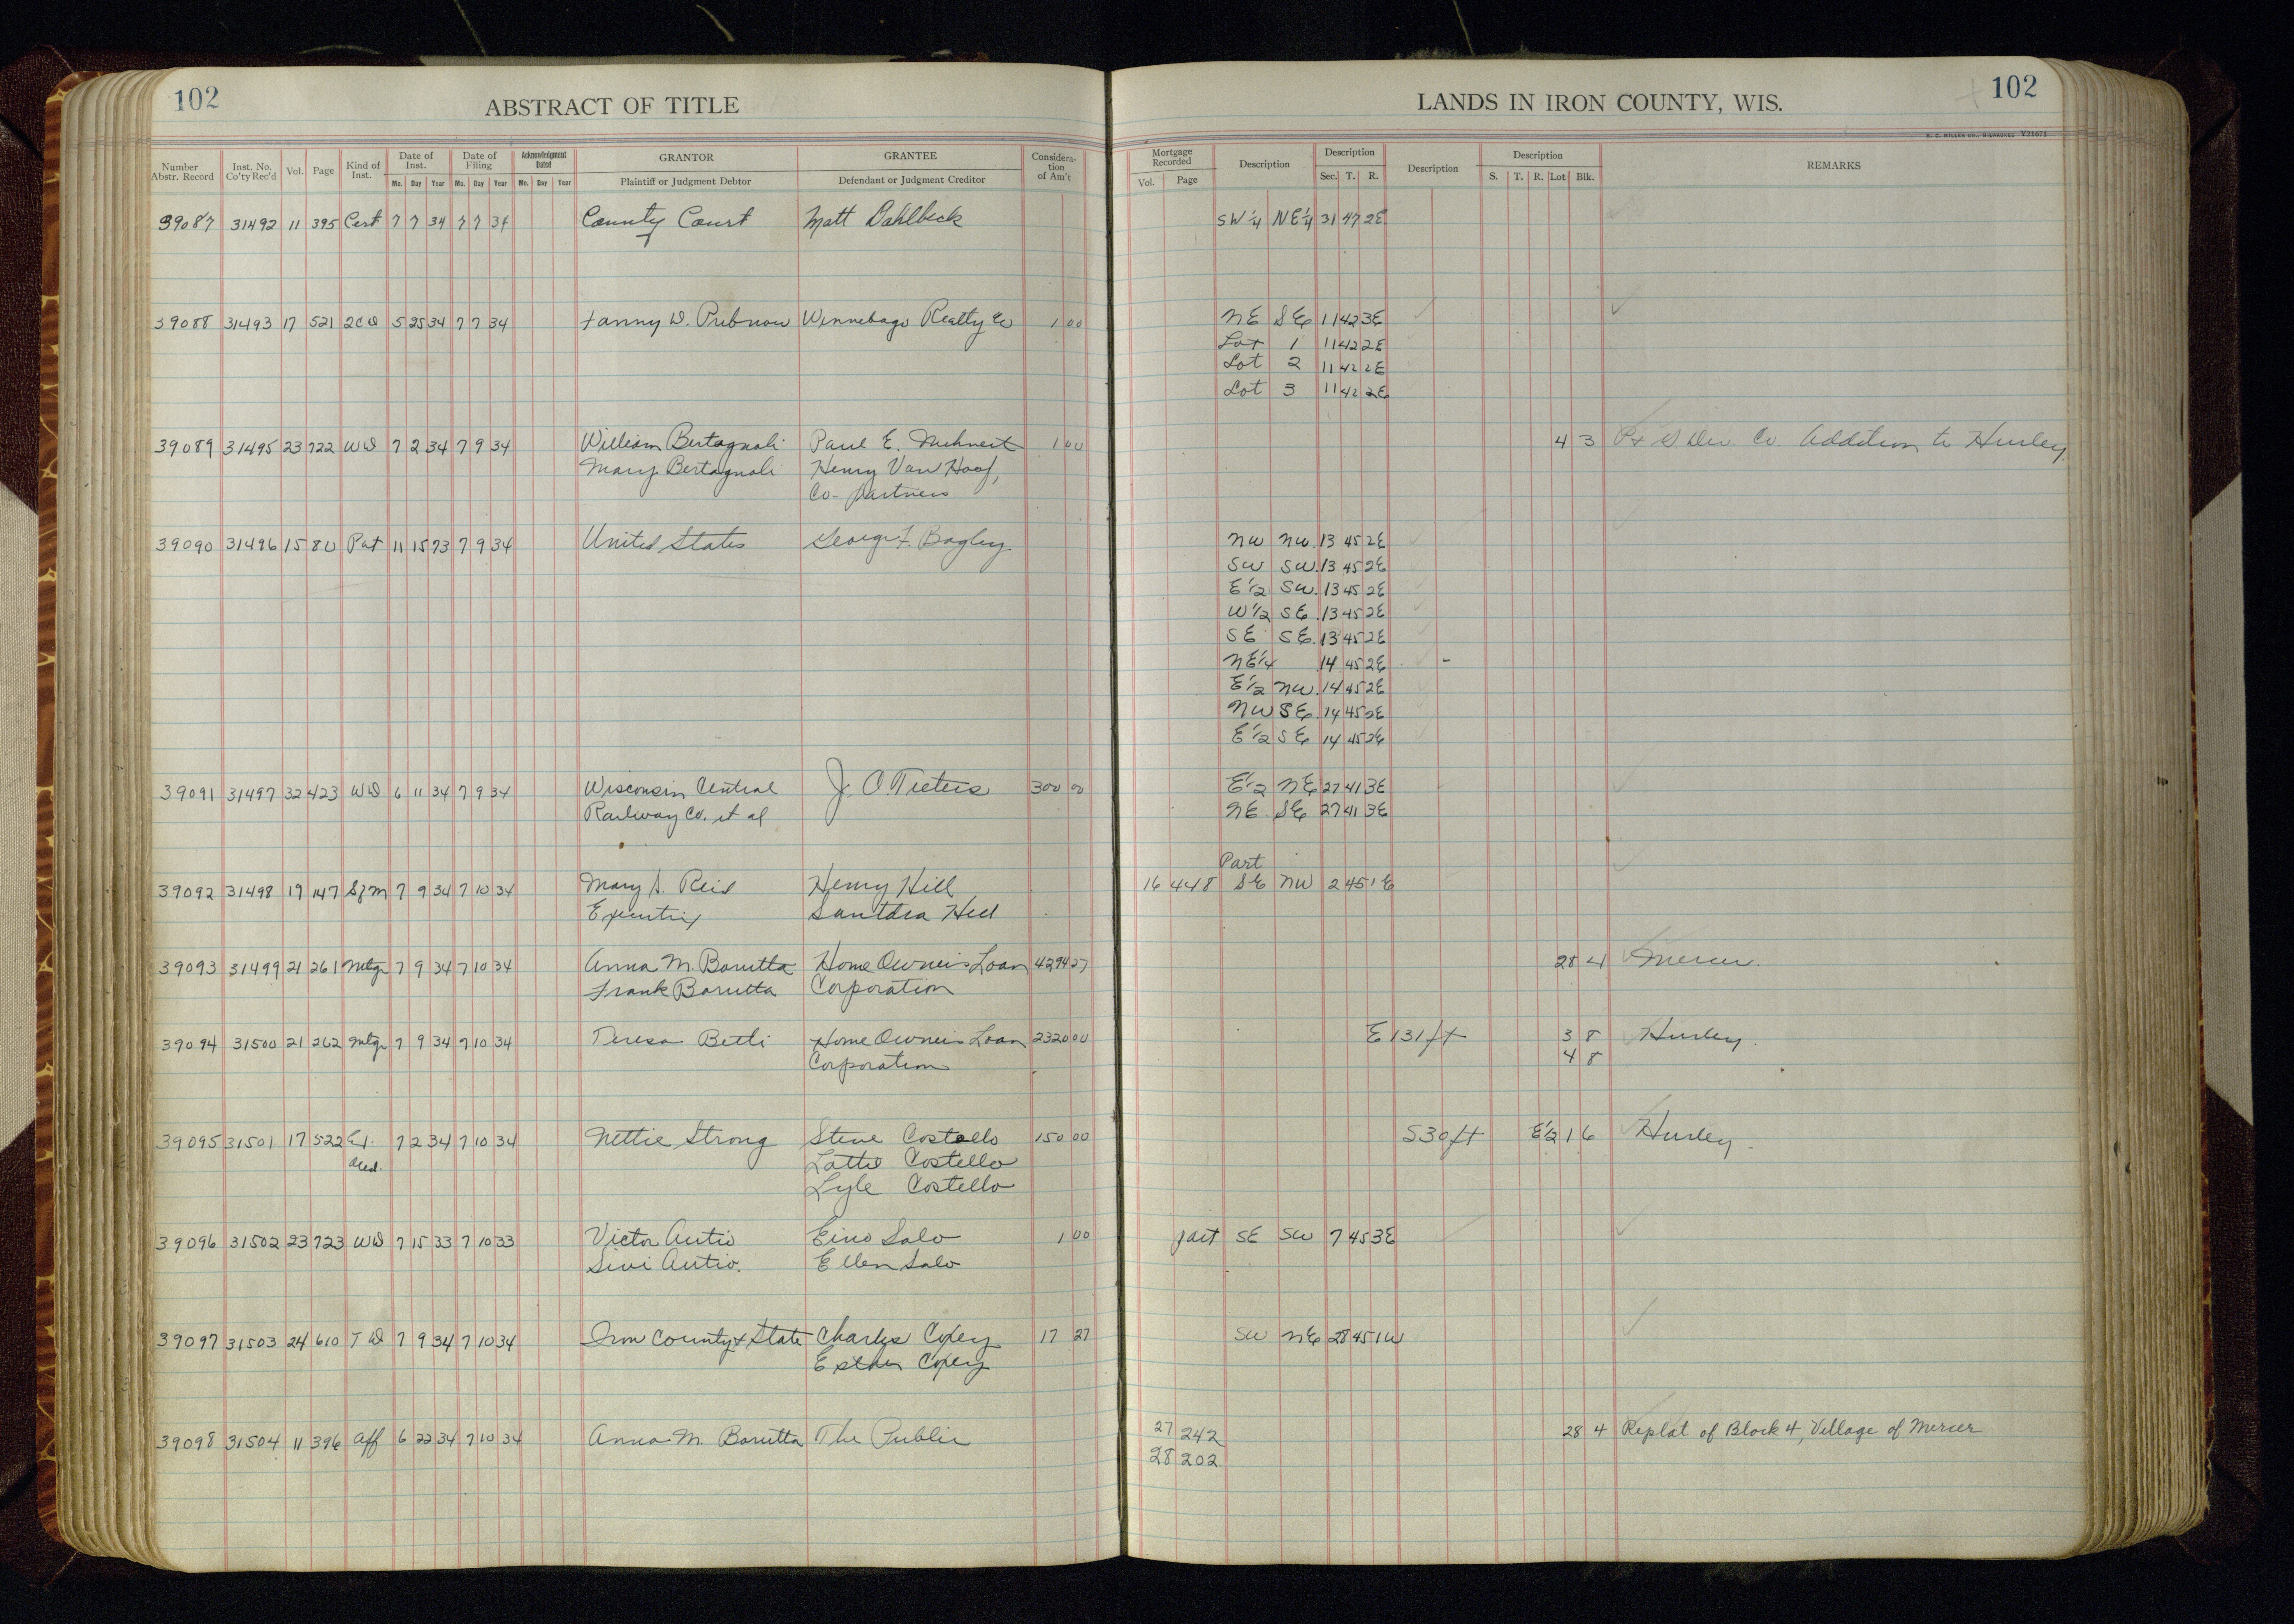 102
ABSTRACT OF TITLE
LANDS IN IRON COUNTY, WIS.
102
H. C. MILLER CO., MILWAUKEE Y21671
Number Abstr. Record
Inst. No. Co'ty Rec'd
Vol.
Page
Kind of Inst.
Date of Inst.
Mo. Day Year
Date of Filing
Mo. Day Year
Acknowledgment Dated
Mo. Day Year
GRANTOR
Plaintiff or Judgment Debtor
GRANTEE
Defendant or Judgment Creditor
Considera-tion of Am't
Mortgage Recorded
Vol. Page
Description
Description
Sec. T. R.
Description
Description
S. T. R. Lot Blk.
REMARKS
39087 31492 11 395 Cert 7 7 34 7 7 34 County Court Matt Dahlbeck SW 1/4 NE 1/4 31 47 2E
39088 31493 17 521 2CD 5 25 34 7 7 34 Fanny D. Pubnow Winnebago Realty Co 1 00 NE SE 11 42 3E
Lot 1 11 42 2E
Lot 2 11 42 2E
Lot 3 11 42 2E
39089 31495 23 722 WD 7 2 34 7 9 34 William Bertagnoli Paul E. 1 00 4 3 Co. Addition to Hurley
Mary Bertagnoli Henry Van Hoof,
Co-partners
39090 31496 15 80 Pat 11 15 73 7 9 34 United States George F. Bagley NW NW 13 45 2E
SW SW 13 45 2E
E 1/2 SW 13 45 2E
W 1/2 SE 13 45 2E
SE SE 13 45 2E
NE 1/4 14 45 2E
E 1/2 NW 14 45 2E
NW SE 14 45 2E
E 1/2 SE 14 45 2E
39091 31497 32 423 WD 6 11 34 7 9 34 Wisconsin Central J. O. Tieters 300 00 E 1/2 NE 27 41 3E
Railway Co. et al NE SE 27 41 3E
Part
39092 31498 19 147 SfM 7 9 34 7 10 34 Mary A. Reid Henry Hill 16 448 SE NW 2 45 1E
Executrix Hill
39093 31499 21 261 Mtg 7 9 34 7 10 34 Anna M. Barutta Home Owners Loan 4294 27 28 4 Mercer.
Frank Barutta Corporation
39094 31500 21 262 Mtg 7 9 34 7 10 34 Teresa Betti Home Owners Loan 2320 00 E 131 ft 3 8 Hurley.
Corporation 4 8
39095 31501 17 522 7 2 34 7 10 34 Nettie Strong Steve Costello 150 00 S 30 ft E 1/2 1 6 Hurley.
Lottie Costello
Lyle Costello
39096 31502 23 723 WD 7 15 33 7 10 33 Victor Autio Eino Salo 1 00 part SE SW 7 45 3E
Sivi Autio. Ellen Salo
39097 31503 24 610 TD 7 9 34 7 10 34 Iron County & State Charles Copey 17 27 SW NE 28 45 1W
Esther Copey
39098 31504 11 396 Aff 6 22 34 7 10 34 Anna M. Barutta The Public 27 242 28 4 Replat of Block 4, Village of Mercer
28 202